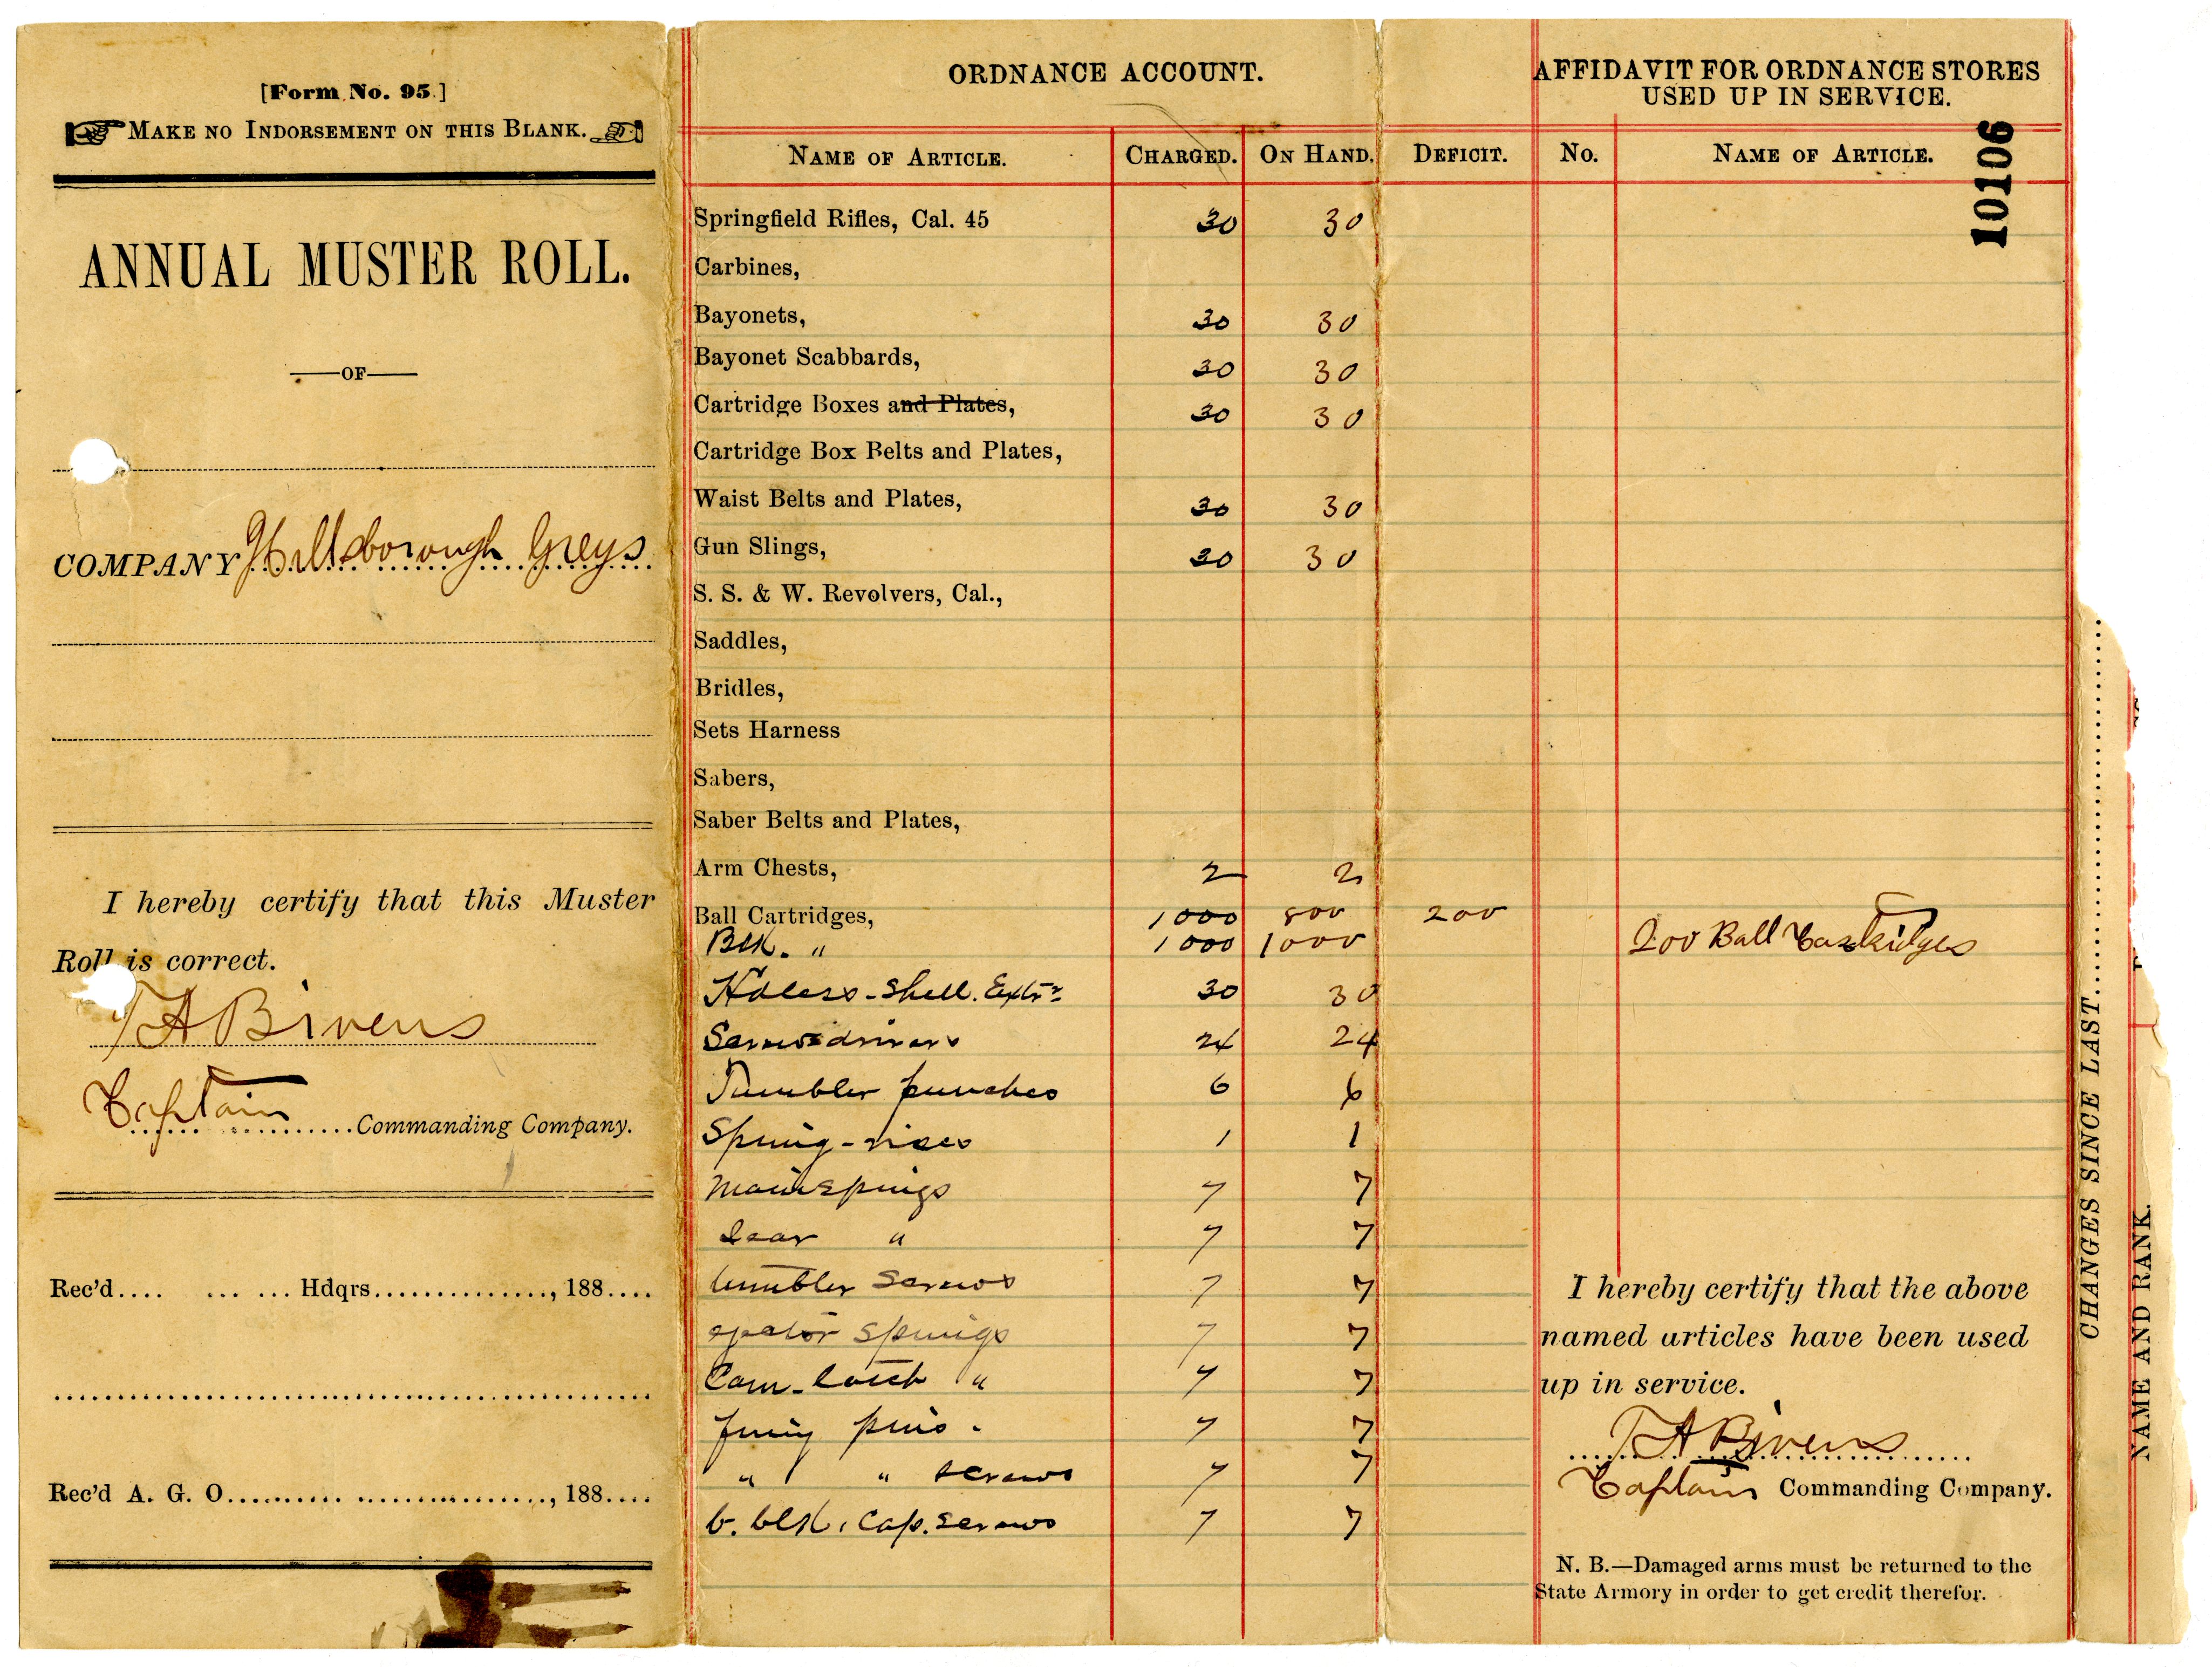 [Form No. 95.]
MAKE NO INDORSEMENT ON THIS BLANK.
ANNUAL MUSTER ROLL.
OF
COMPANY Hillsborough Greys
I hereby certify that this Muster
Roll is correct.
T A Bivens
Captain Commanding Company.
Rec'd.... ... ... Hdqrs..............., 188....
Rec'd A. G. O.......... .................., 188....
ORDNANCE ACCOUNT.
NAME OF ARTICLE. CHARGED. ON HAND. DEFICIT.
Springfield Rifles, Cal. 45 30 30
Carbines,
Bayonets, 30 30
Bayonet Scabbards, 30 30
Cartridge Boxes and Plates, 30 30
Cartridge Box Belts and Plates,
Waist Belts and Plates, 30 30
Gun Slings, 30 30
S. S. & W. Revolvers, Cal.,
Saddles,
Bridles,
Sets Harness
Sabers,
Saber Belts and Plates,
Arm Chests, 2 2
Ball Cartridges, 1000 800 200
Blk. " 1000 1000
Hdless-Shell. Extrs 30 30
Screwdrivers 24 24
Tumbler punches 6 6
Spring-vises 1 1
Mainsprings 7 7
Sear " 7 7
tumbler Screws 7 7
ejector Springs 7 7
Cam-latch " 7 7
firing pins - 7 7
" " screws 7 7
b. blk. Cap. screws 7 7
AFFIDAVIT FOR ORDNANCE STORES
USED UP IN SERVICE.
NO. NAME OF ARTICLE.
10106
200 Ball Cartridges
I hereby certify that the above
named articles have been used
up in service.
T A Bivens
Captain Commanding Company.
N. B.—Damaged arms must be returned to the
State Armory in order to get credit therefor.
CHANGES SINCE LAST
NAME AND RANK.